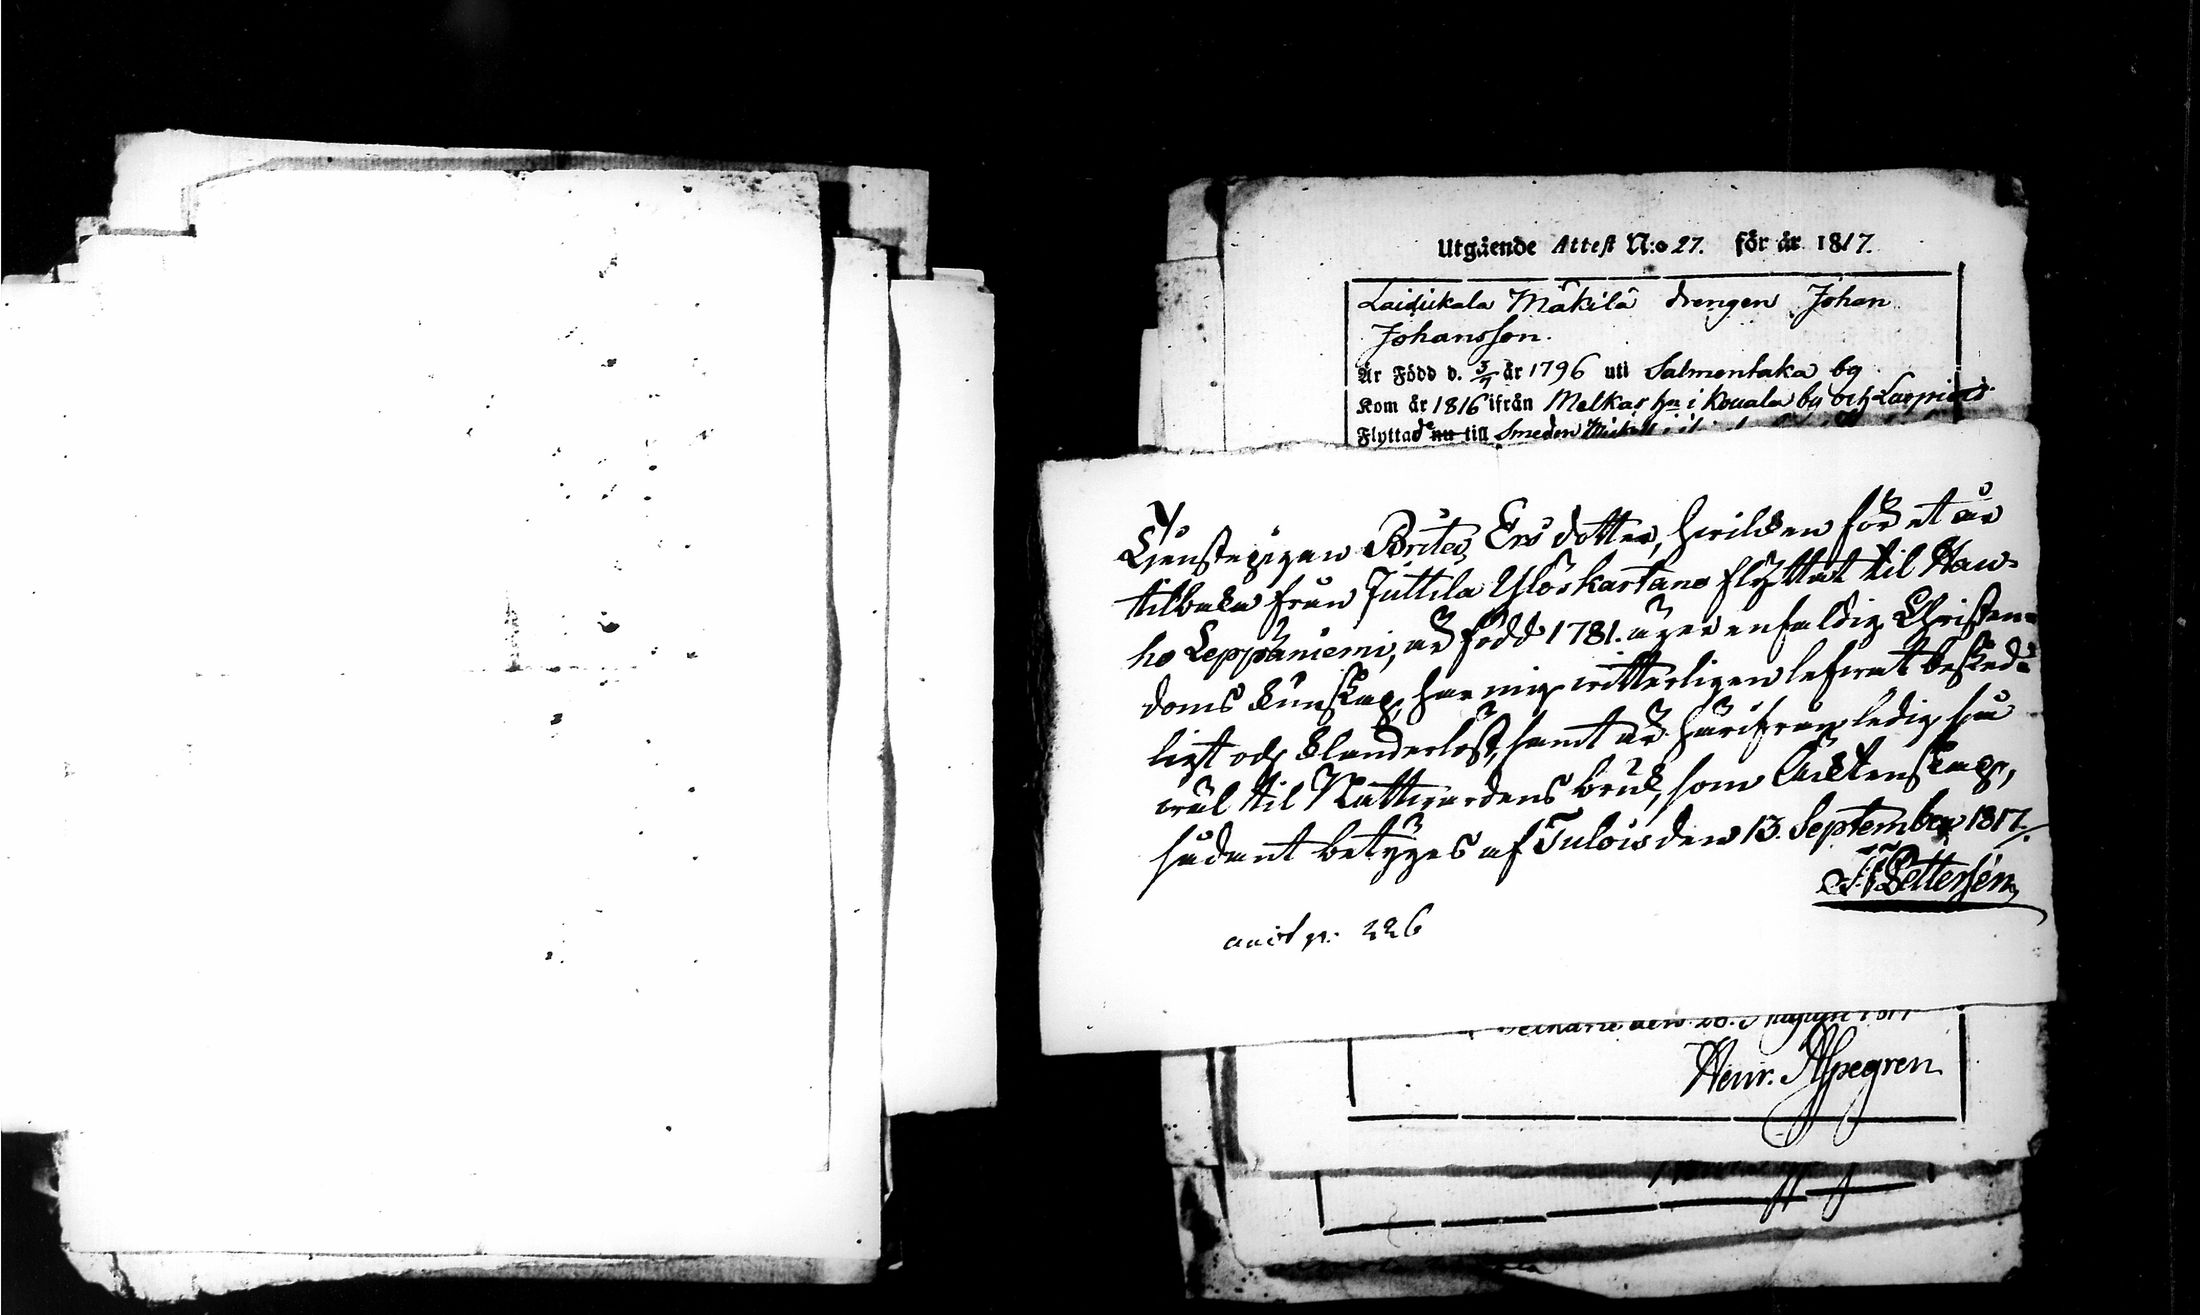 Utgående Attest N:o 27. för år 1817.
Laidikala Mäkilä drengen Johan
Johansson.
Är Född d. 3/7 år 1796 uti Salmentaka by
Kom år 1816 ifrån Melkas hn i Kouala by och
Flyttade nu till Smeden
Tjenstepigan Brita Ers dotter, hvilken för et år
tilbaka från Juttila Ylöskartano flyttat til Hau-
ho Leppäniemi, är född 1781. äger enfaldig Christen-
doms kunskap, har mig vitterligen lefvat beskede-
ligt och klanderlöst, samt är härifrån ledig så
väl til Nattvardens bruk, som Äcktenskap,
sådant betyges af Tulois den 13. September 1817.
Pettersén
p. 226
den 28. Augusti 1817
Henr. Alpegren